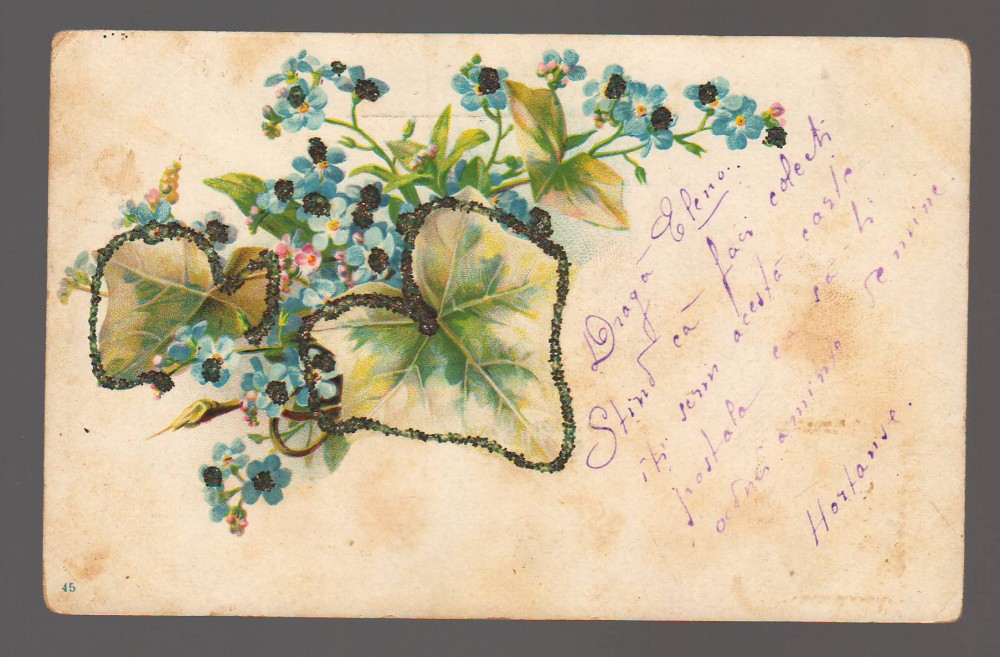 Dragă Eleno..
Stiind că faci colecti
iti scriu acestă carte
postala ca să ti
aduci aminte de mine
Hortanse.
45